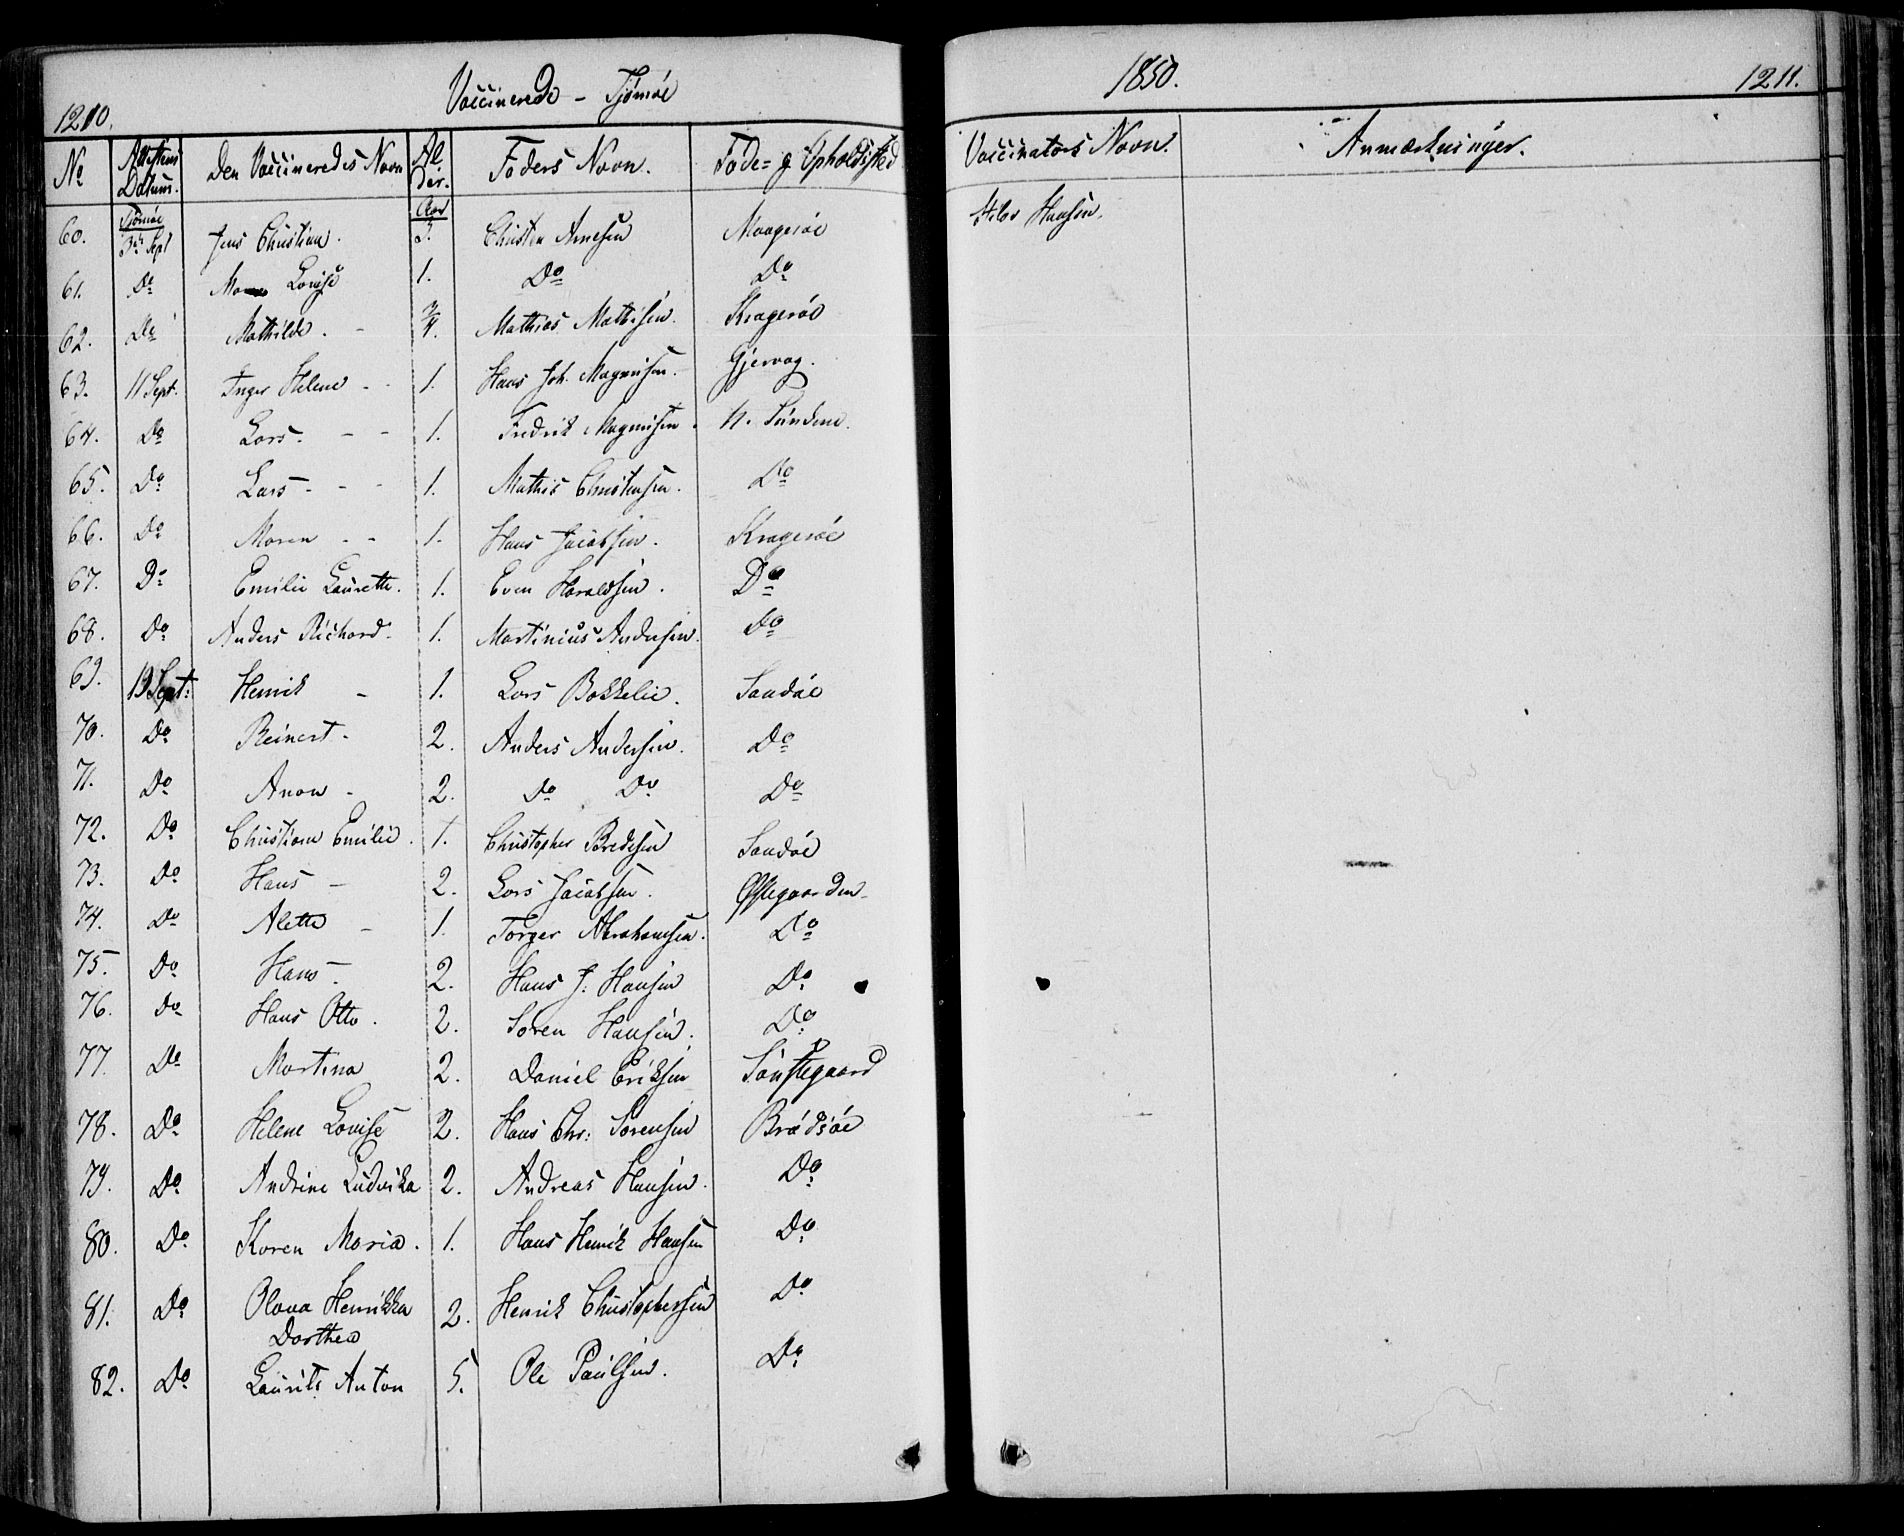 1210.
Vaccinerede – Tjømöe
No Attestens Datum. Den Vaccineredes Navn Alder. Faders Navn. Føde= og Opholdssted
60. Tjømöe 3die Sept Jens Christian. Aar 3. Christen Arnesen Maageröe
61. Do Lovise 1. Do Do
62. Do Mathilde. – 3/4. Mathias Mathisen. Krageröe
63. 11 Sept. Inger Helene – – 1. Hans Joh. Magnusen. Gjervog.
64. Do Lars. – – 1. Fredrik Magnusen. N. Sundene.
65. Do Lars – – – 1. Mathis Christensen. Do
66. Do Maren – – 1. Hans Jacobsen. Krageröe
67. Do Emilie Laurette. 1. Even Haraldsen. Do
68. Do Anders Richard. 1. Martinius Andersen. Do
69. 13 Sept: Henrik – 1. Lars Bakkelie. Sandöe
70. Do Reinert – 2. Anders Andersen. Do
71. Do Anon – 2. Do Do Do
72. Do Christiane Emilie. 1. Christopher Bredesen Sandöe
73. Do Hans – 2. Lars Jacobsen. Østegaarden
74. Do Alette – 1. Torger Abrahamsen. Do
75. Do Hans – 2. Hans J. Hansen Do
76. Do Hans Otto. 2. Søren Hansen. Do
77. Do Martina 2. Daniel Eriksen Sönstegaard
78. Do Helene Lovise 2. Hans Chr: Sørensen Brødsöe
79. Do Andrine Ludvika 2. Andreas Hansen. Do
80. Do Karen Maria. 1. Hans Henrik Hansen Do
81. Do Olava Henrikka Dorthea 2. Henrik Christophersen Do
82. Do Laurits Anton 5. Ole Paulsen. Do
1850.
1211.
Vaccinators Navn. Anmærkninger.
Hansen.